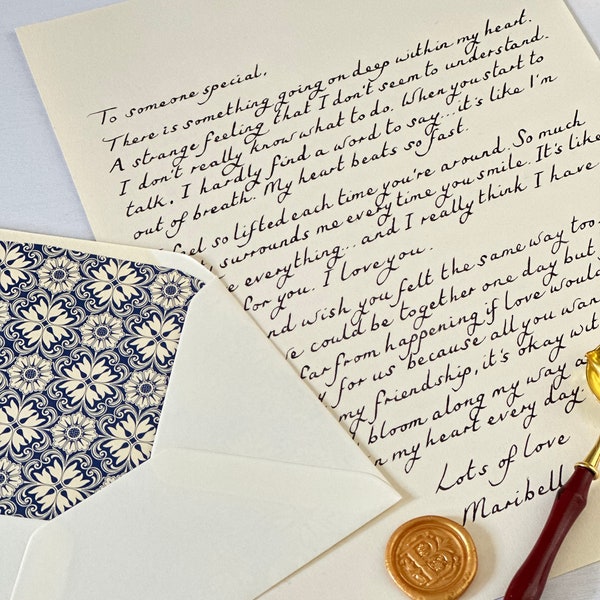 To someone special,
There is something going on deep within my heart.
A strange feeling that I don't seem to understand.
I don't really know what to do. When you start to
talk, I hardly find a word to say...it's like I'm
out of breath. My heart beats so fast.
feel so lifted each time you're around. So much
surrounds me everytime you smile. It's like
everything... and I really think I have
for you. I love you.
nd wish you felt the same way too.
could be together one day but
far from happening if love would
for us because all you wan
my friendship, it's okay wit
bloom along my way a
my heart every day.
Lots of love
Maribell
B